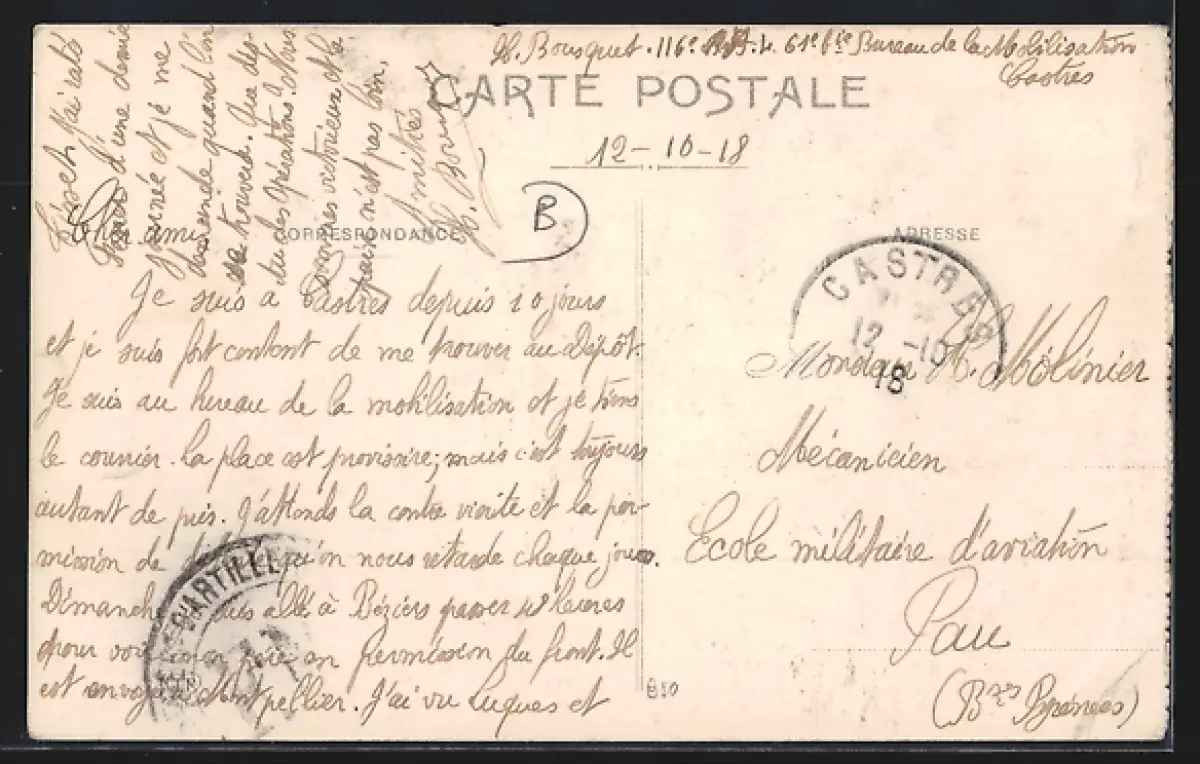 H. Bousquet. 116e 61e Bie Bureau de la Mobilisation
Castres
CARTE POSTALE
12-10-18
B
CORRESPONDANCE
ADRESSE
Cher ami,
Je suis à Castres depuis 10 jours
et je suis fort content de me trouver au Dépôt.
Je suis au bureau de la mobilisation et je tiens
le courrier. La place est provisoire; mais c'est toujours
autant de pris. J'attends la contre visite et la per-
mission de qu'on nous retarde chaque jour.
Dimanche suis allé à Béziers passer 48 heures
pour voir mon en permission du front. Il
est envoyé à Montpellier. J'ai vu Luques et
j'ai
d'une demie
journée et je me
demande quand l'on
se trouvera. Que
tu des opérations. Nous
sommes victorieux et la
paix n'est pas loin.
Amitiés
H. Bousquet
CASTRES
12 -10
18
Monsieur H. Molinier
Mécanicien
Ecole militaire d'aviation
Pau
(Bses Pyrénées)
D'ARTILLE
850